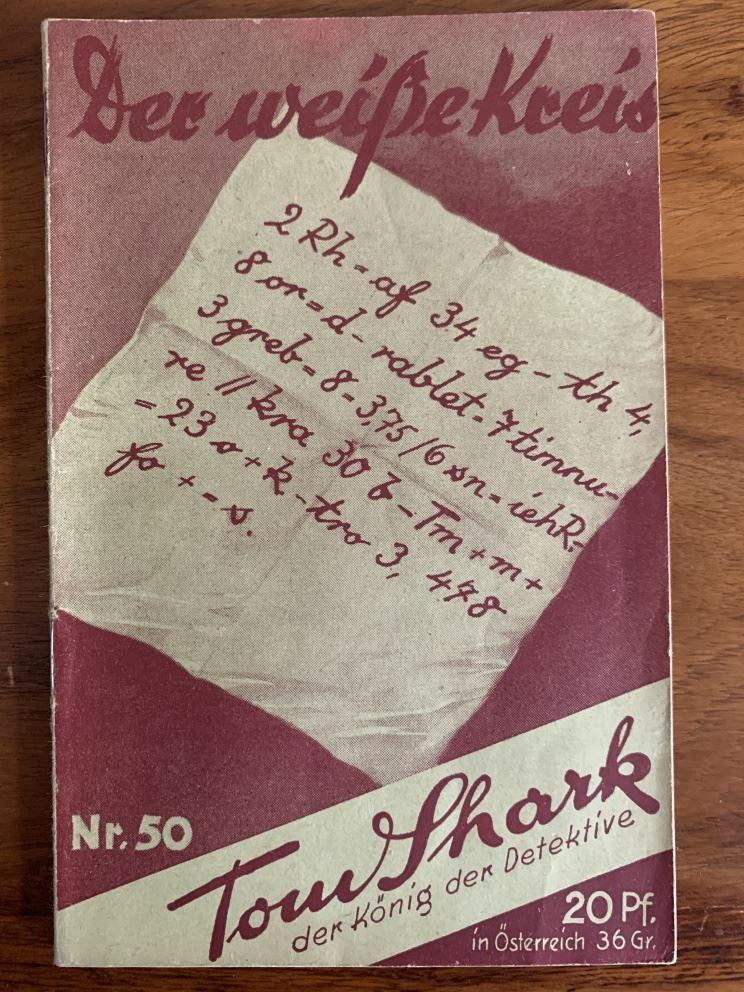 Der weiße Kreis
2 Rh = af 34 eg - th 4,
8 or = d - rablet = 7 timnu-
3 greb = 8 - 3,75 / 6 sn = iehR-
re // kra 30 b - Tm + m +
= 23 o + k - tro 3, 498
fo + = s.
Nr. 50
Tom Shark
der König der Detektive
20 Pf.
in Österreich 36 Gr.